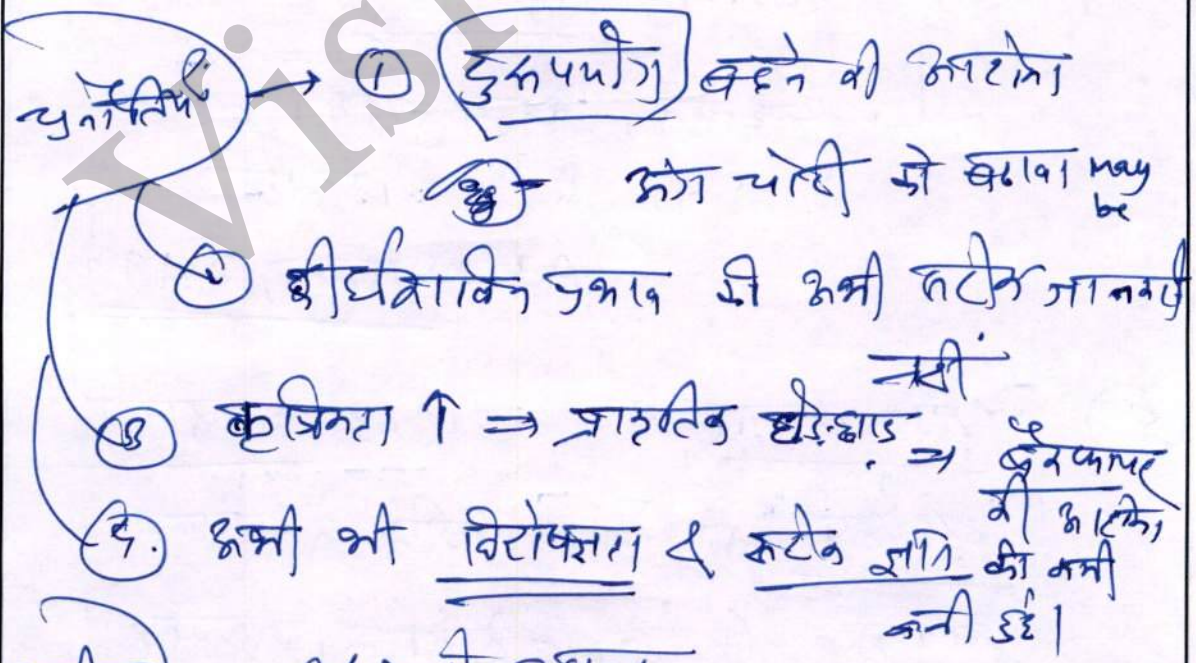 चुनौतियाँ → ① दुरूपयोग बढ़ने की आशंका
अंग चोरी को बढ़ावा may be
② दीर्घकालिक प्रभाव की अभी सटीक जानकारी नहीं
③ कृत्रिमता ↑ ⇒ प्राकृतिक छेड़छाड़ ⇒ की आशंका
④. अभी भी विशेषज्ञता & सटीक ज्ञान की कमी बनी हुई है।